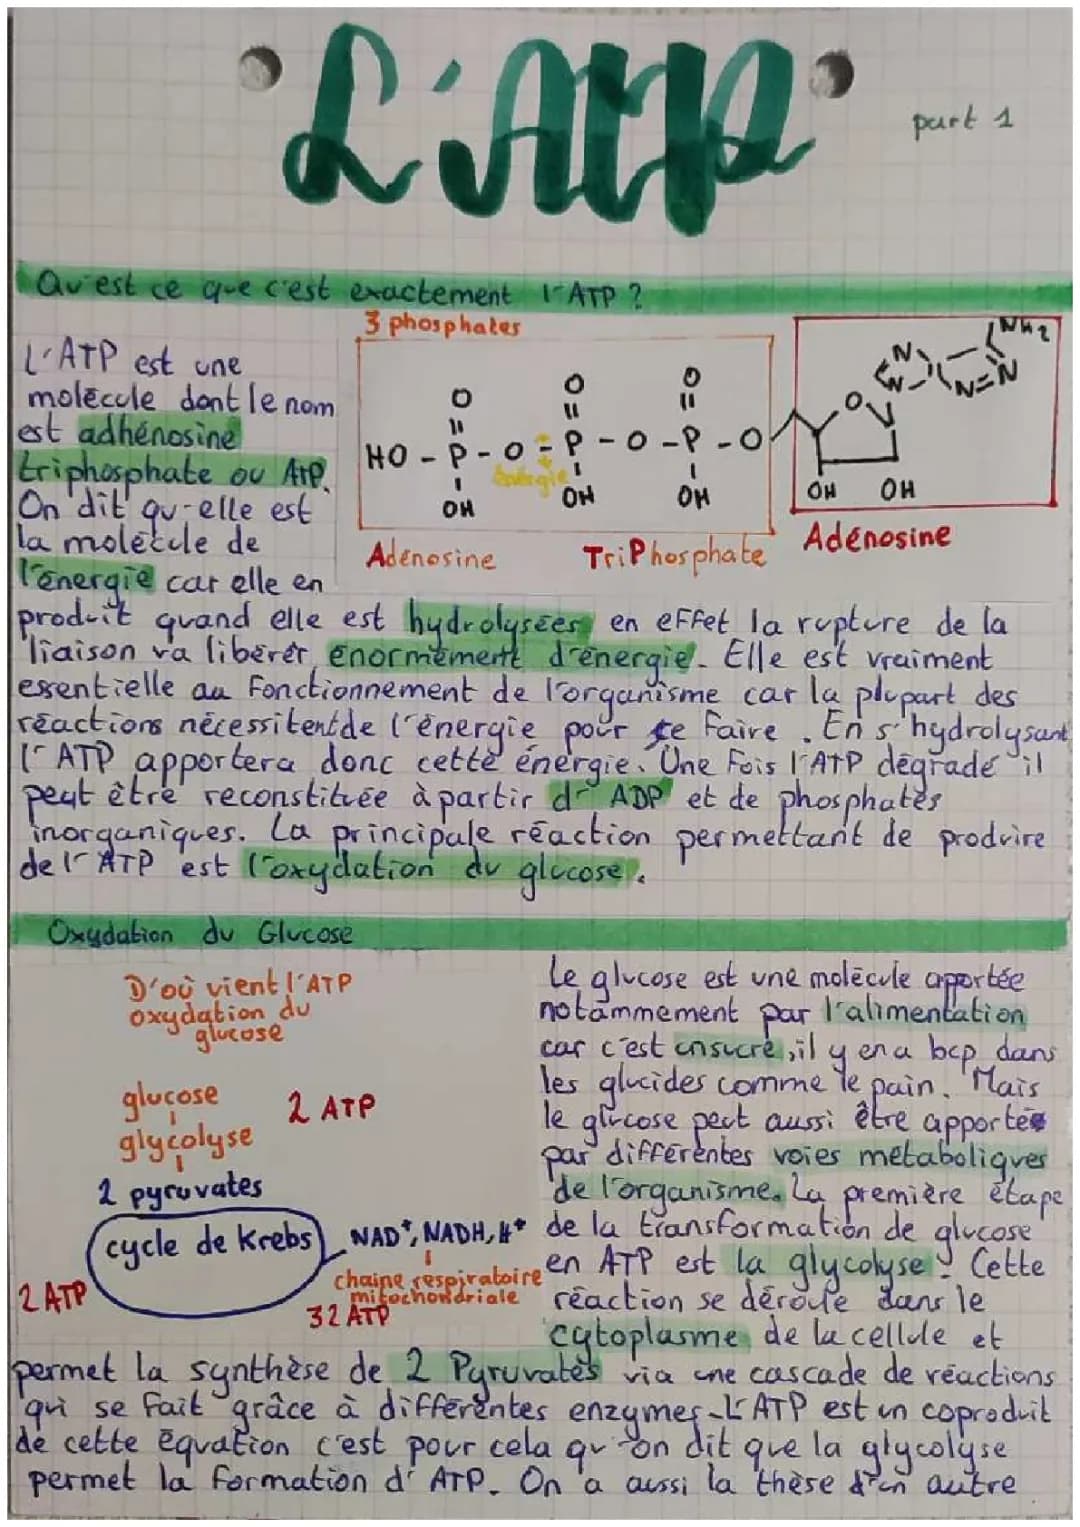 L'ATP
part 1
Qu'est ce que c'est exactement l'ATP ?
3 phosphates
L'ATP est une
molécule dont le nom
est adhénosine
triphosphate ou ATP.
On dit qu'elle est
la molécule de
l'énergie car elle en
O O O
HO - P - O - P - O - P - O
énergie
OH OH OH
NH2
N N
N N=N
O
OH OH
Adénosine TriPhosphate
Adénosine
produit quand elle est hydrolysées, en effet la rupture de la
liaison va libérer énormément d'énergie. Elle est vraiment
essentielle au fonctionnement de l'organisme car la plupart des
réactions nécessitent de l'énergie pour se faire. En s'hydrolysant
l'ATP apportera donc cette énergie. Une fois l'ATP dégradé il
peut être reconstituée à partir d'ADP et de phosphates
inorganiques. La principale réaction permettant de produire
de l'ATP est l'oxydation du glucose.
Oxydation du Glucose
D'où vient l'ATP
oxydation du
glucose
glucose
2 ATP
glycolyse
2 pyruvates
cycle de Krebs
NAD+, NADH, H+
chaine respiratoire
mitochondriale
2 ATP
32 ATP
Le glucose est une molécule apportée
notamment par l'alimentation
car c'est un sucre, il y en a bcp dans
les glucides comme le pain. Mais
le glucose peut aussi être apporté
par différentes voies métaboliques
de l'organisme. La première étape
de la transformation de glucose
en ATP est la glycolyse. Cette
réaction se déroule dans le
cytoplasme de la cellule et
permet la synthèse de 2 Pyruvates via une cascade de réactions
qui se fait grâce à différentes enzymes. L'ATP est un coproduit
de cette équation c'est pour cela qu'on dit que la glycolyse
permet la formation d'ATP. On a aussi la thèse d'un autre